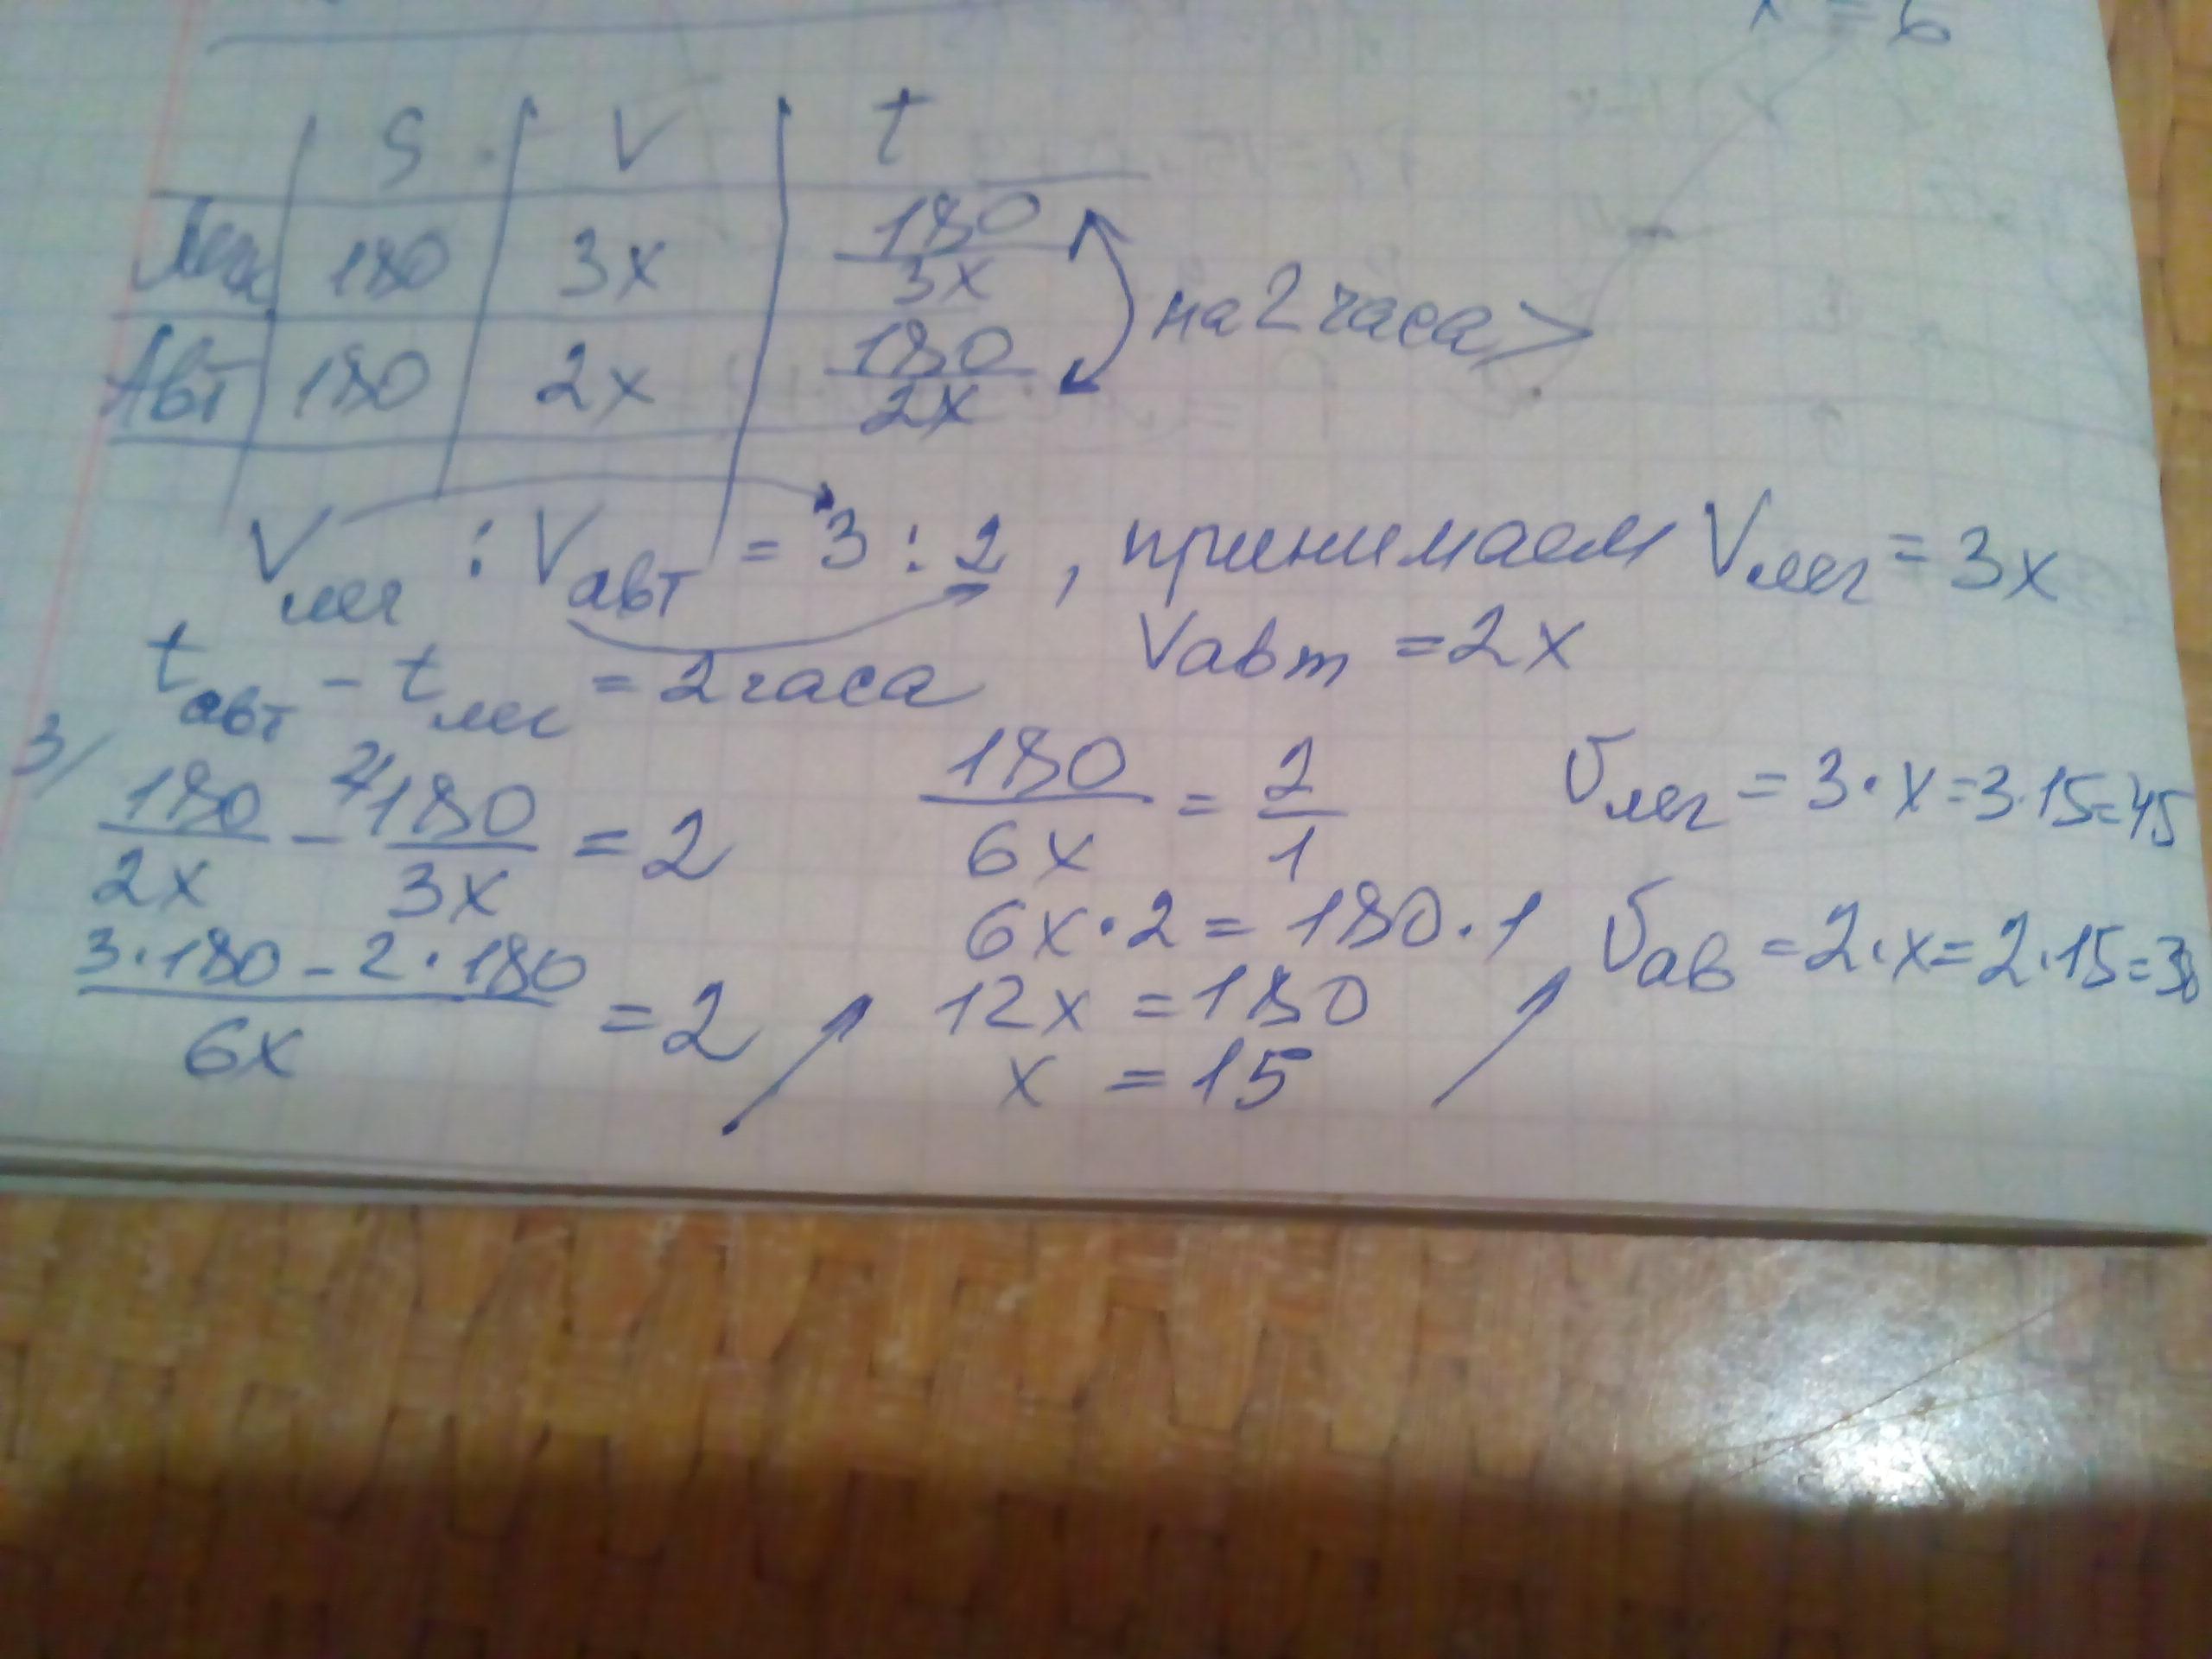 x = 6
S V t
Легк 180 3x 180/3x
на 2 часа >
Авт 180 2x 180/2x
Vлег : Vавт = 3 : 2 , принимаем Vлег = 3x
Vавт = 2x
tавт - tлег = 2 часа
3/ 180/2x - 2/ 180/3x = 2
(3·180 - 2·180)/6x = 2
180/6x = 2/1
6x · 2 = 180 · 1
12x = 180
x = 15
Vлег = 3 · x = 3 · 15 = 45
Vав = 2 · x = 2 · 15 = 30